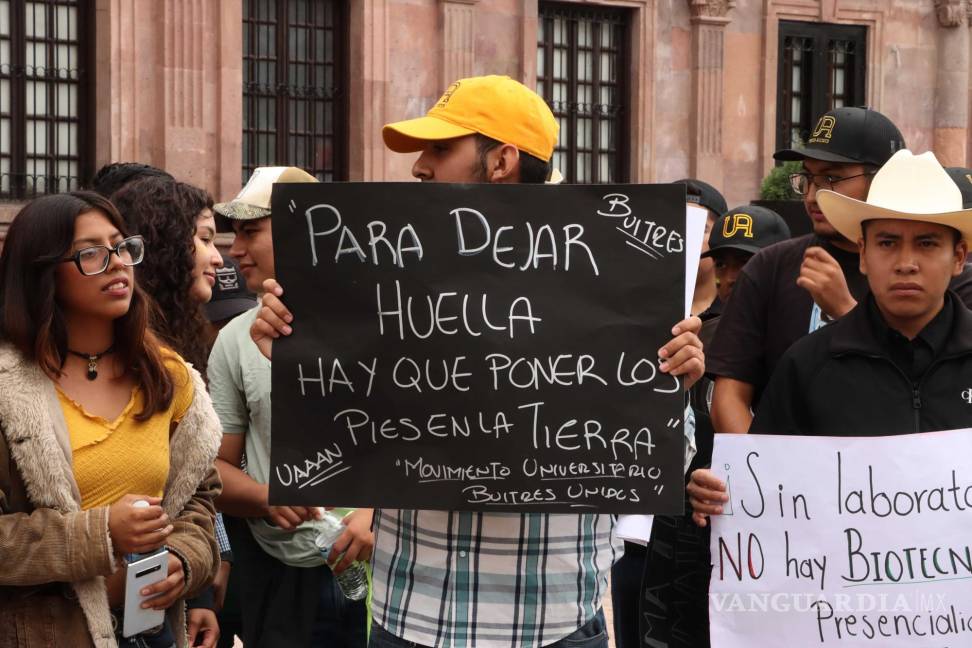 "PARA DEJAR
BUITRES
HUELLA
HAY QUE PONER LOS
PIES EN LA TIERRA"
UAAAN
"MOVIMIENTO UNIVERSITARIO
BUITRES UNIDOS"
¡Sin laborato
NO hay BIOTECN
Presenciali
VANGUARDIA MX
UA
UA
UA